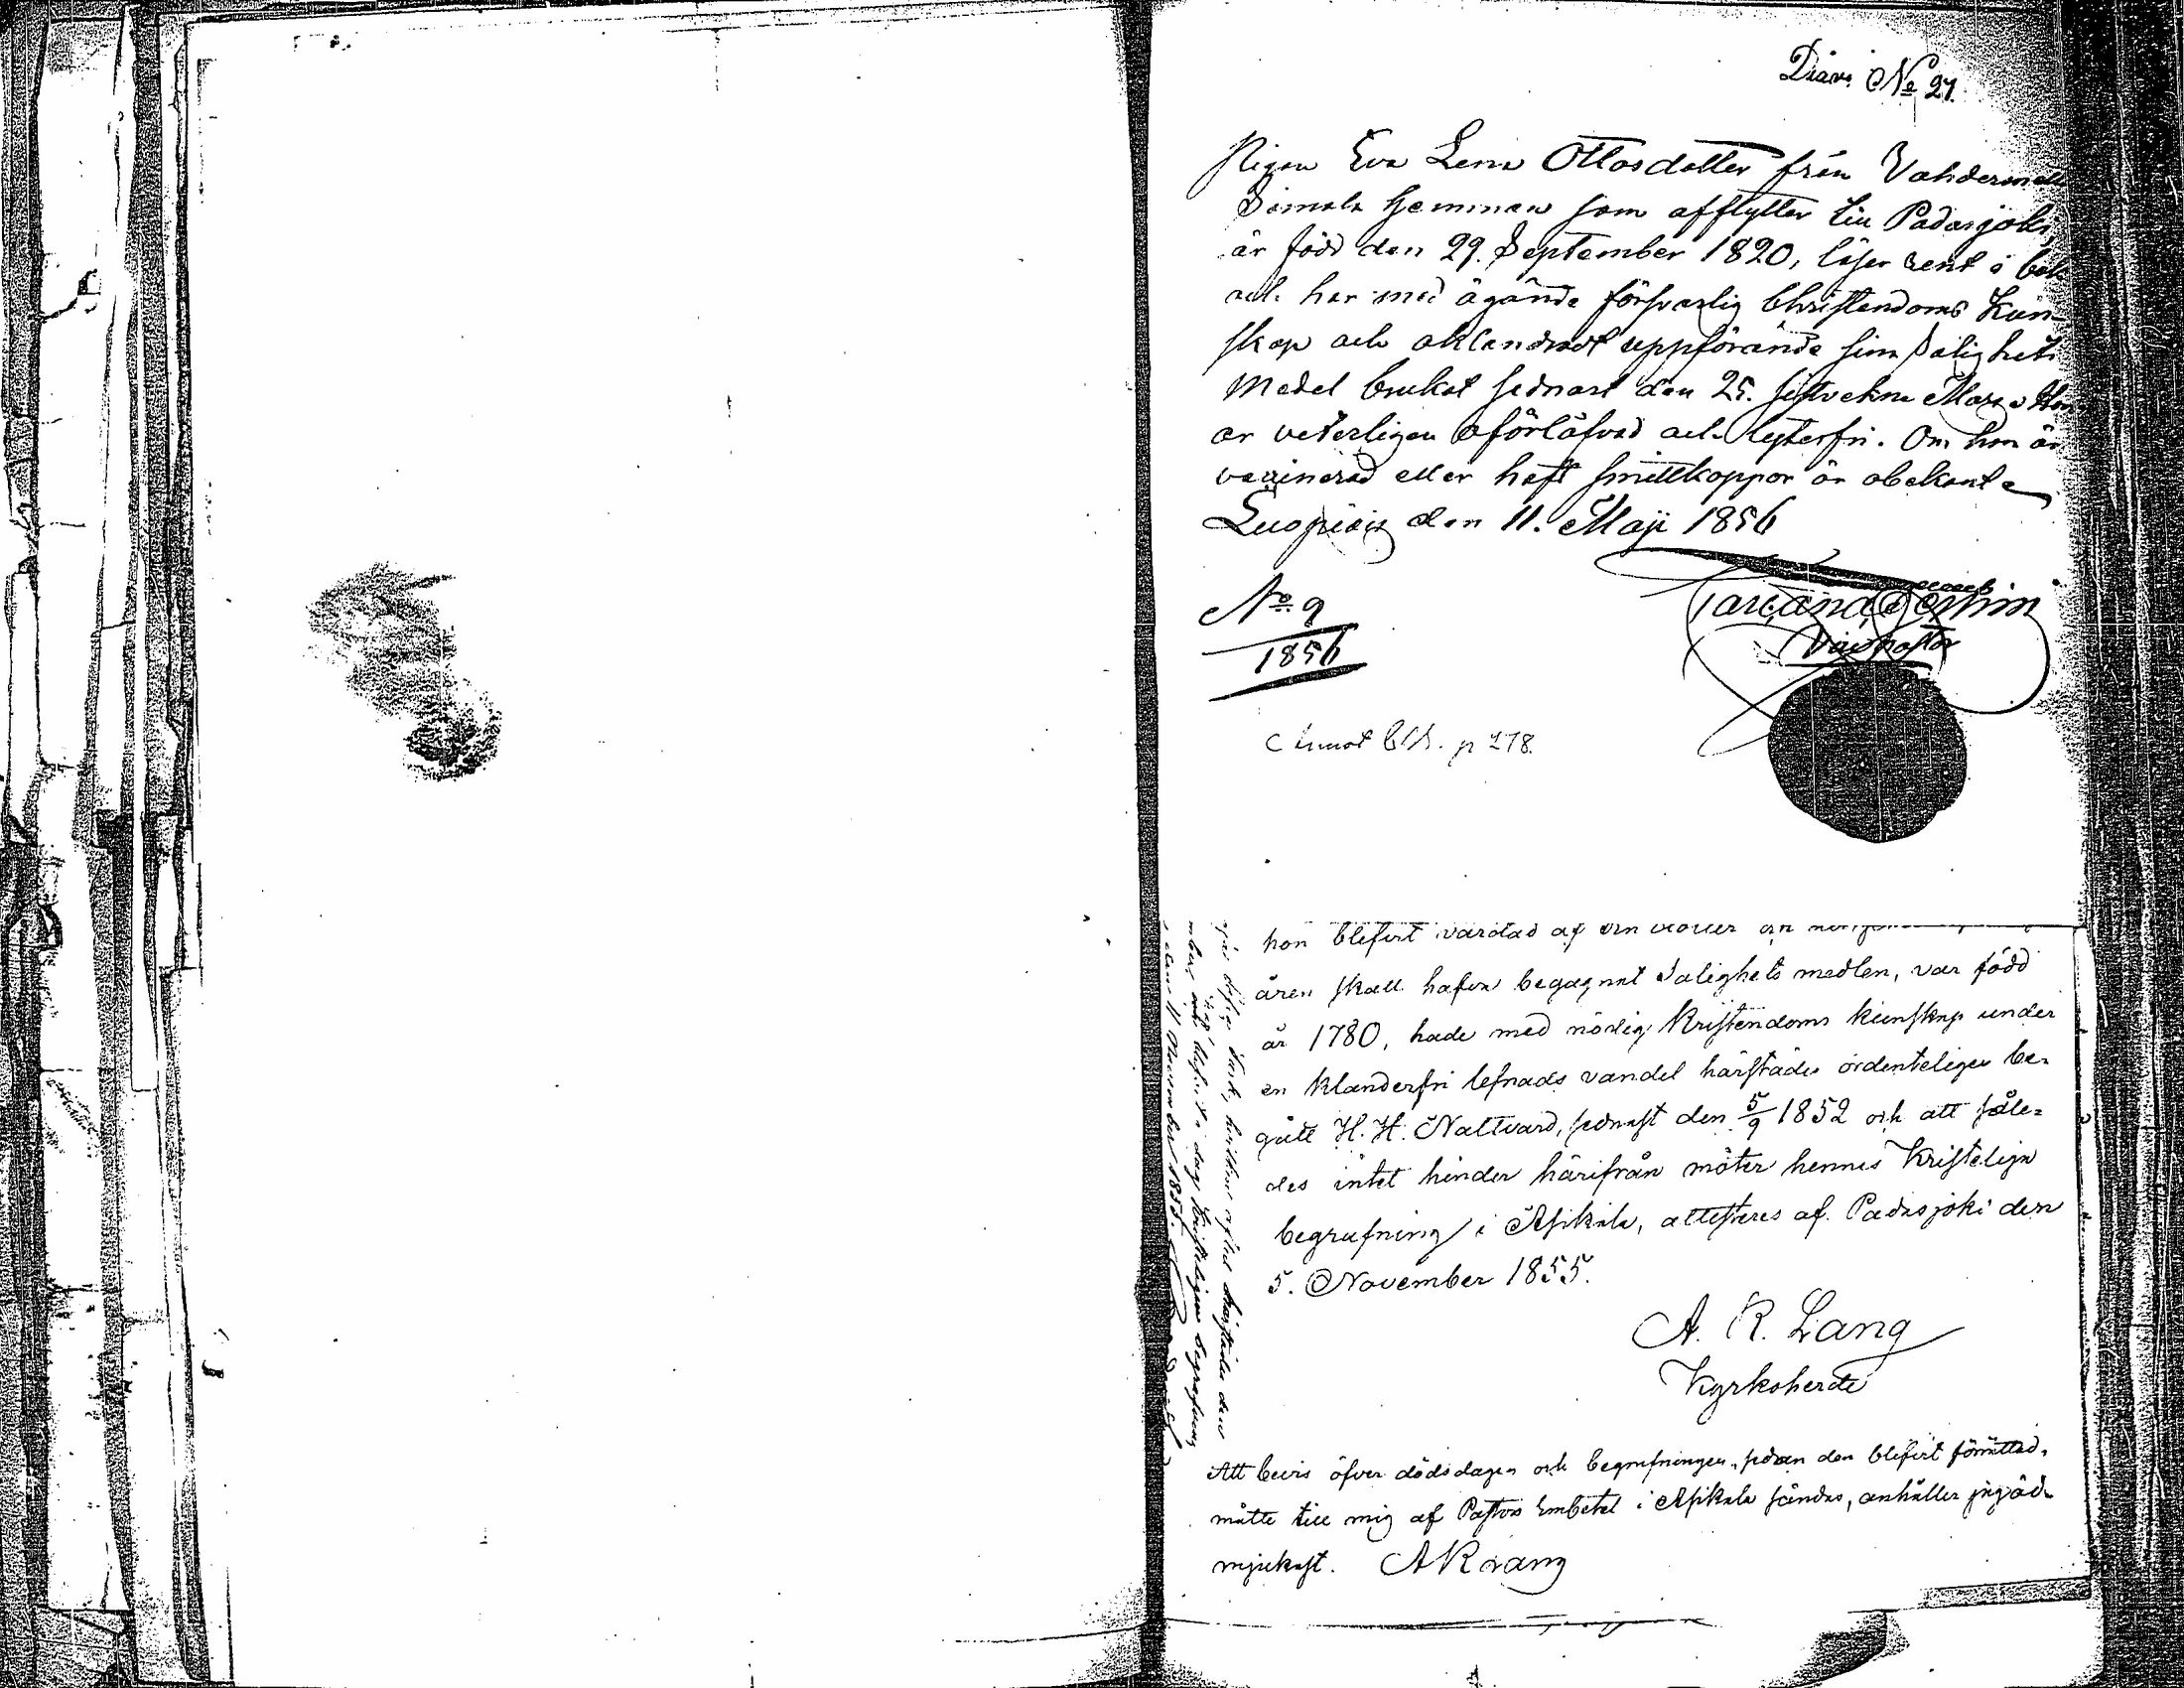 Diar. No 27.
Pigan Eva Lena Ottosdotter från Vahdermetz
Simola Hemman som afflyttar till Padasjoki,
är född den 29. September 1820, läser rent i bok
och har med ägande försvarlig Christendoms Kun-
skap och oklandradt uppförande sina Salighets
Medel brukat sednast den 25. sistvekne Mars. Hon
är veterligen oförlofvad och lyterfri. Om hon är
vaxinerad eller haft smittkoppor är obekant
Luopiois den 11. Maji 1856
No 9
1856
Vice pastor
p 278.
hon blifvit vårdad af
åren skall hafva begagnat Salighets medlen, var född
år 1780, hade med nödig Kristendoms kunskap under
en klanderfri lefnads vandel härstädes ordenteligen be-
gått H. H. Nattvard, sednast den 5/9 1852 och att såle-
des intet hinder härifrån möter hennes Kristeliga
begrafning i Asikala, attesteras af. Padasjoki den
5. November 1855.
A. R. Lang
Kyrkoherde
Att bevis öfver dödsdagen och begrafningen, sedan den blifvit förrättad,
måtte till mig af Pastors Embetet i Asikala sändas, anhåller jag öd-
mjukast. A R Lang
härstädes den
dag Kristeligen begrafven,
11 November 1855.